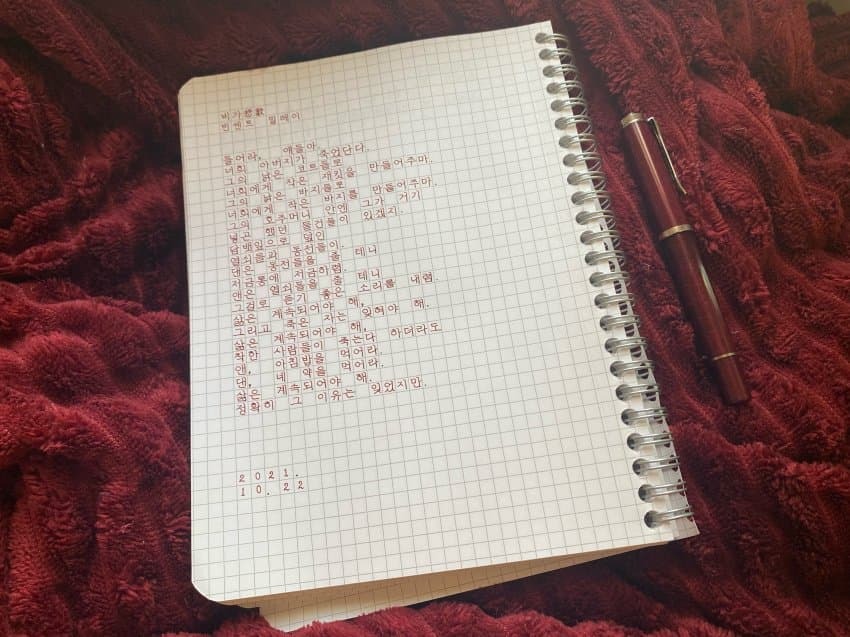 비가悲歌
빈센트 밀레이
들어라, 얘들아.
너희 아버지가 죽었단다.
그의 낡은 코트들로
너희에게 작은 재킷을 만들어주마.
그의 낡은 바지들로
너희에게 작은 바지를 만들어주마.
그의 호주머니 안엔 그가 거기
넣곤 했던 물건들이 있겠지.
담뱃잎으로 덮인
열쇠들과 동전들이.
댄은 동전들을 줄 테니
저금통에 저금하렴.
앤은 열쇠들을 줄 테니
그걸로 듣기 좋은 소리를 내렴.
삶은 계속되어야 해,
그리고 죽은 자는 잊혀야 해.
삶은 계속되어야 해,
착한 사람들이 죽는다 하더라도
앤, 아침밥을 먹어라.
댄, 네 약을 먹어라.
삶은 계속되어야 해.
정확히 그 이유는 잊었지만.
2021.
10. 22